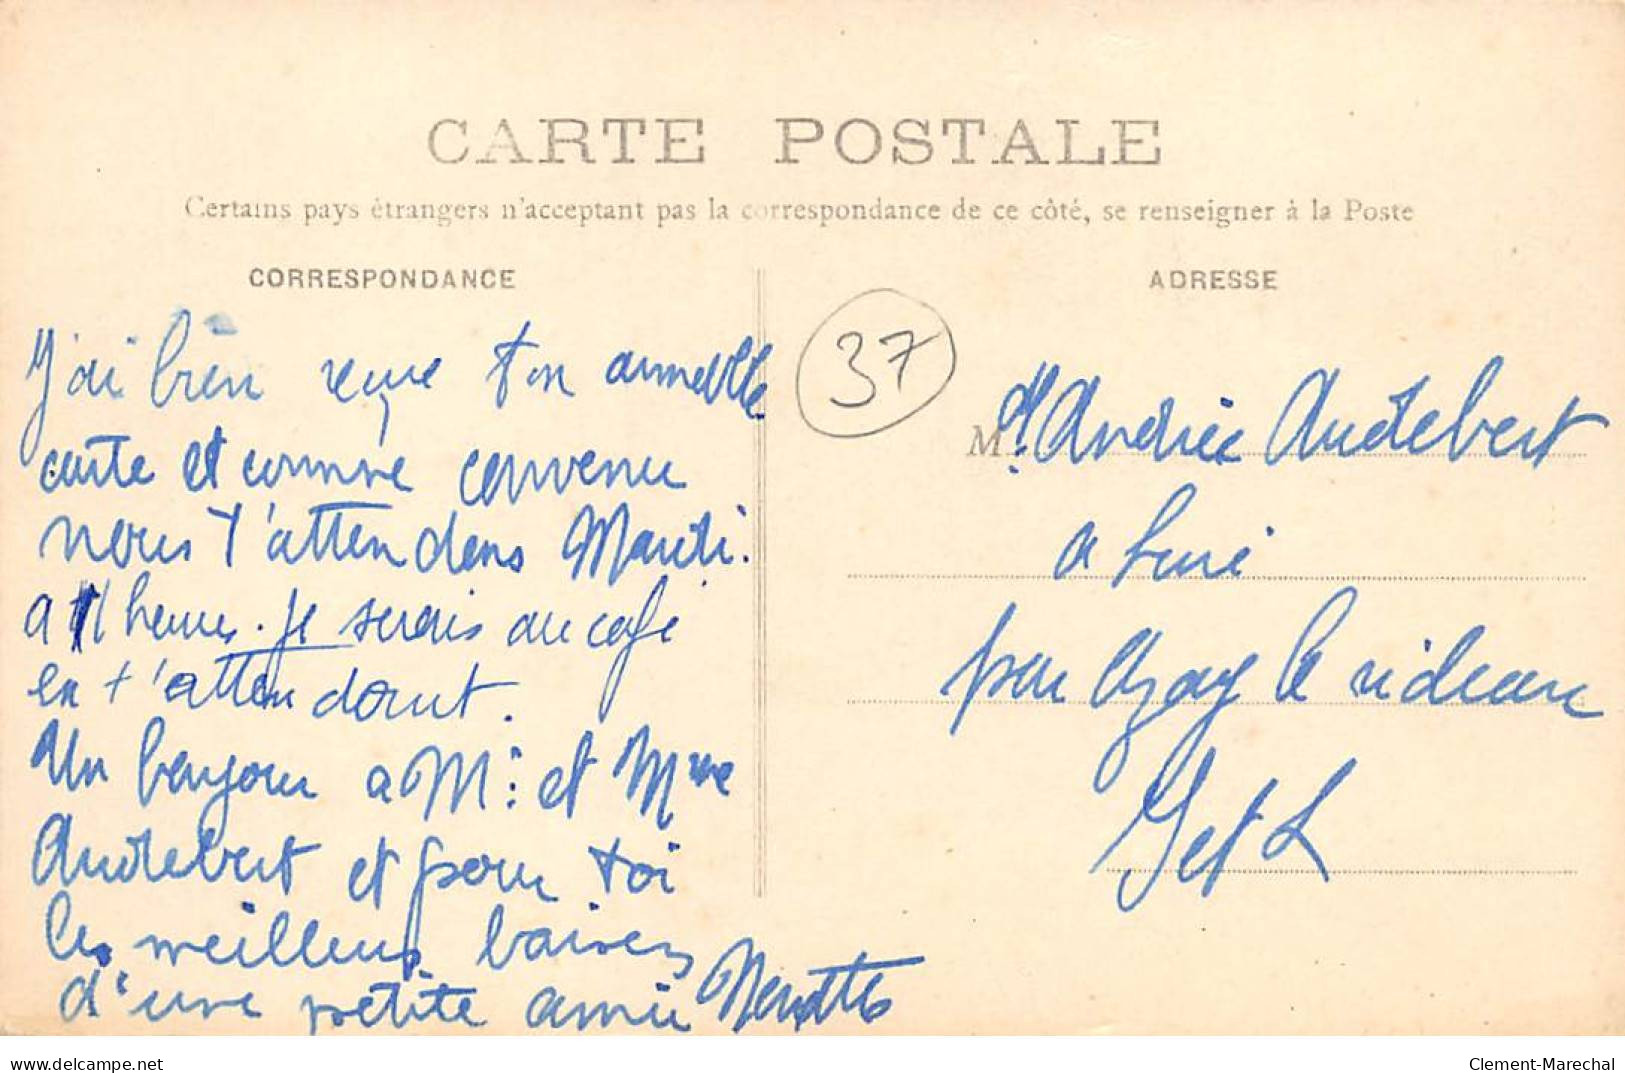 CARTE POSTALE
Certains pays étrangers n'acceptant pas la correspondance de ce côté, se renseigner à la Poste
CORRESPONDANCE
J'ai bien reçue ton
carte et comme convenu
nous t'attendons Mardi.
a 11 heures. Je serais au café
en t'attendant.
Un bonjour a M. et Mme
Audebert et pour toi
les meilleurs baisers
d'une petite amie
37
ADRESSE
M Andrée Audebert
a
par Azay le rideau
I et L
delcampe.net
Clement-Marechal